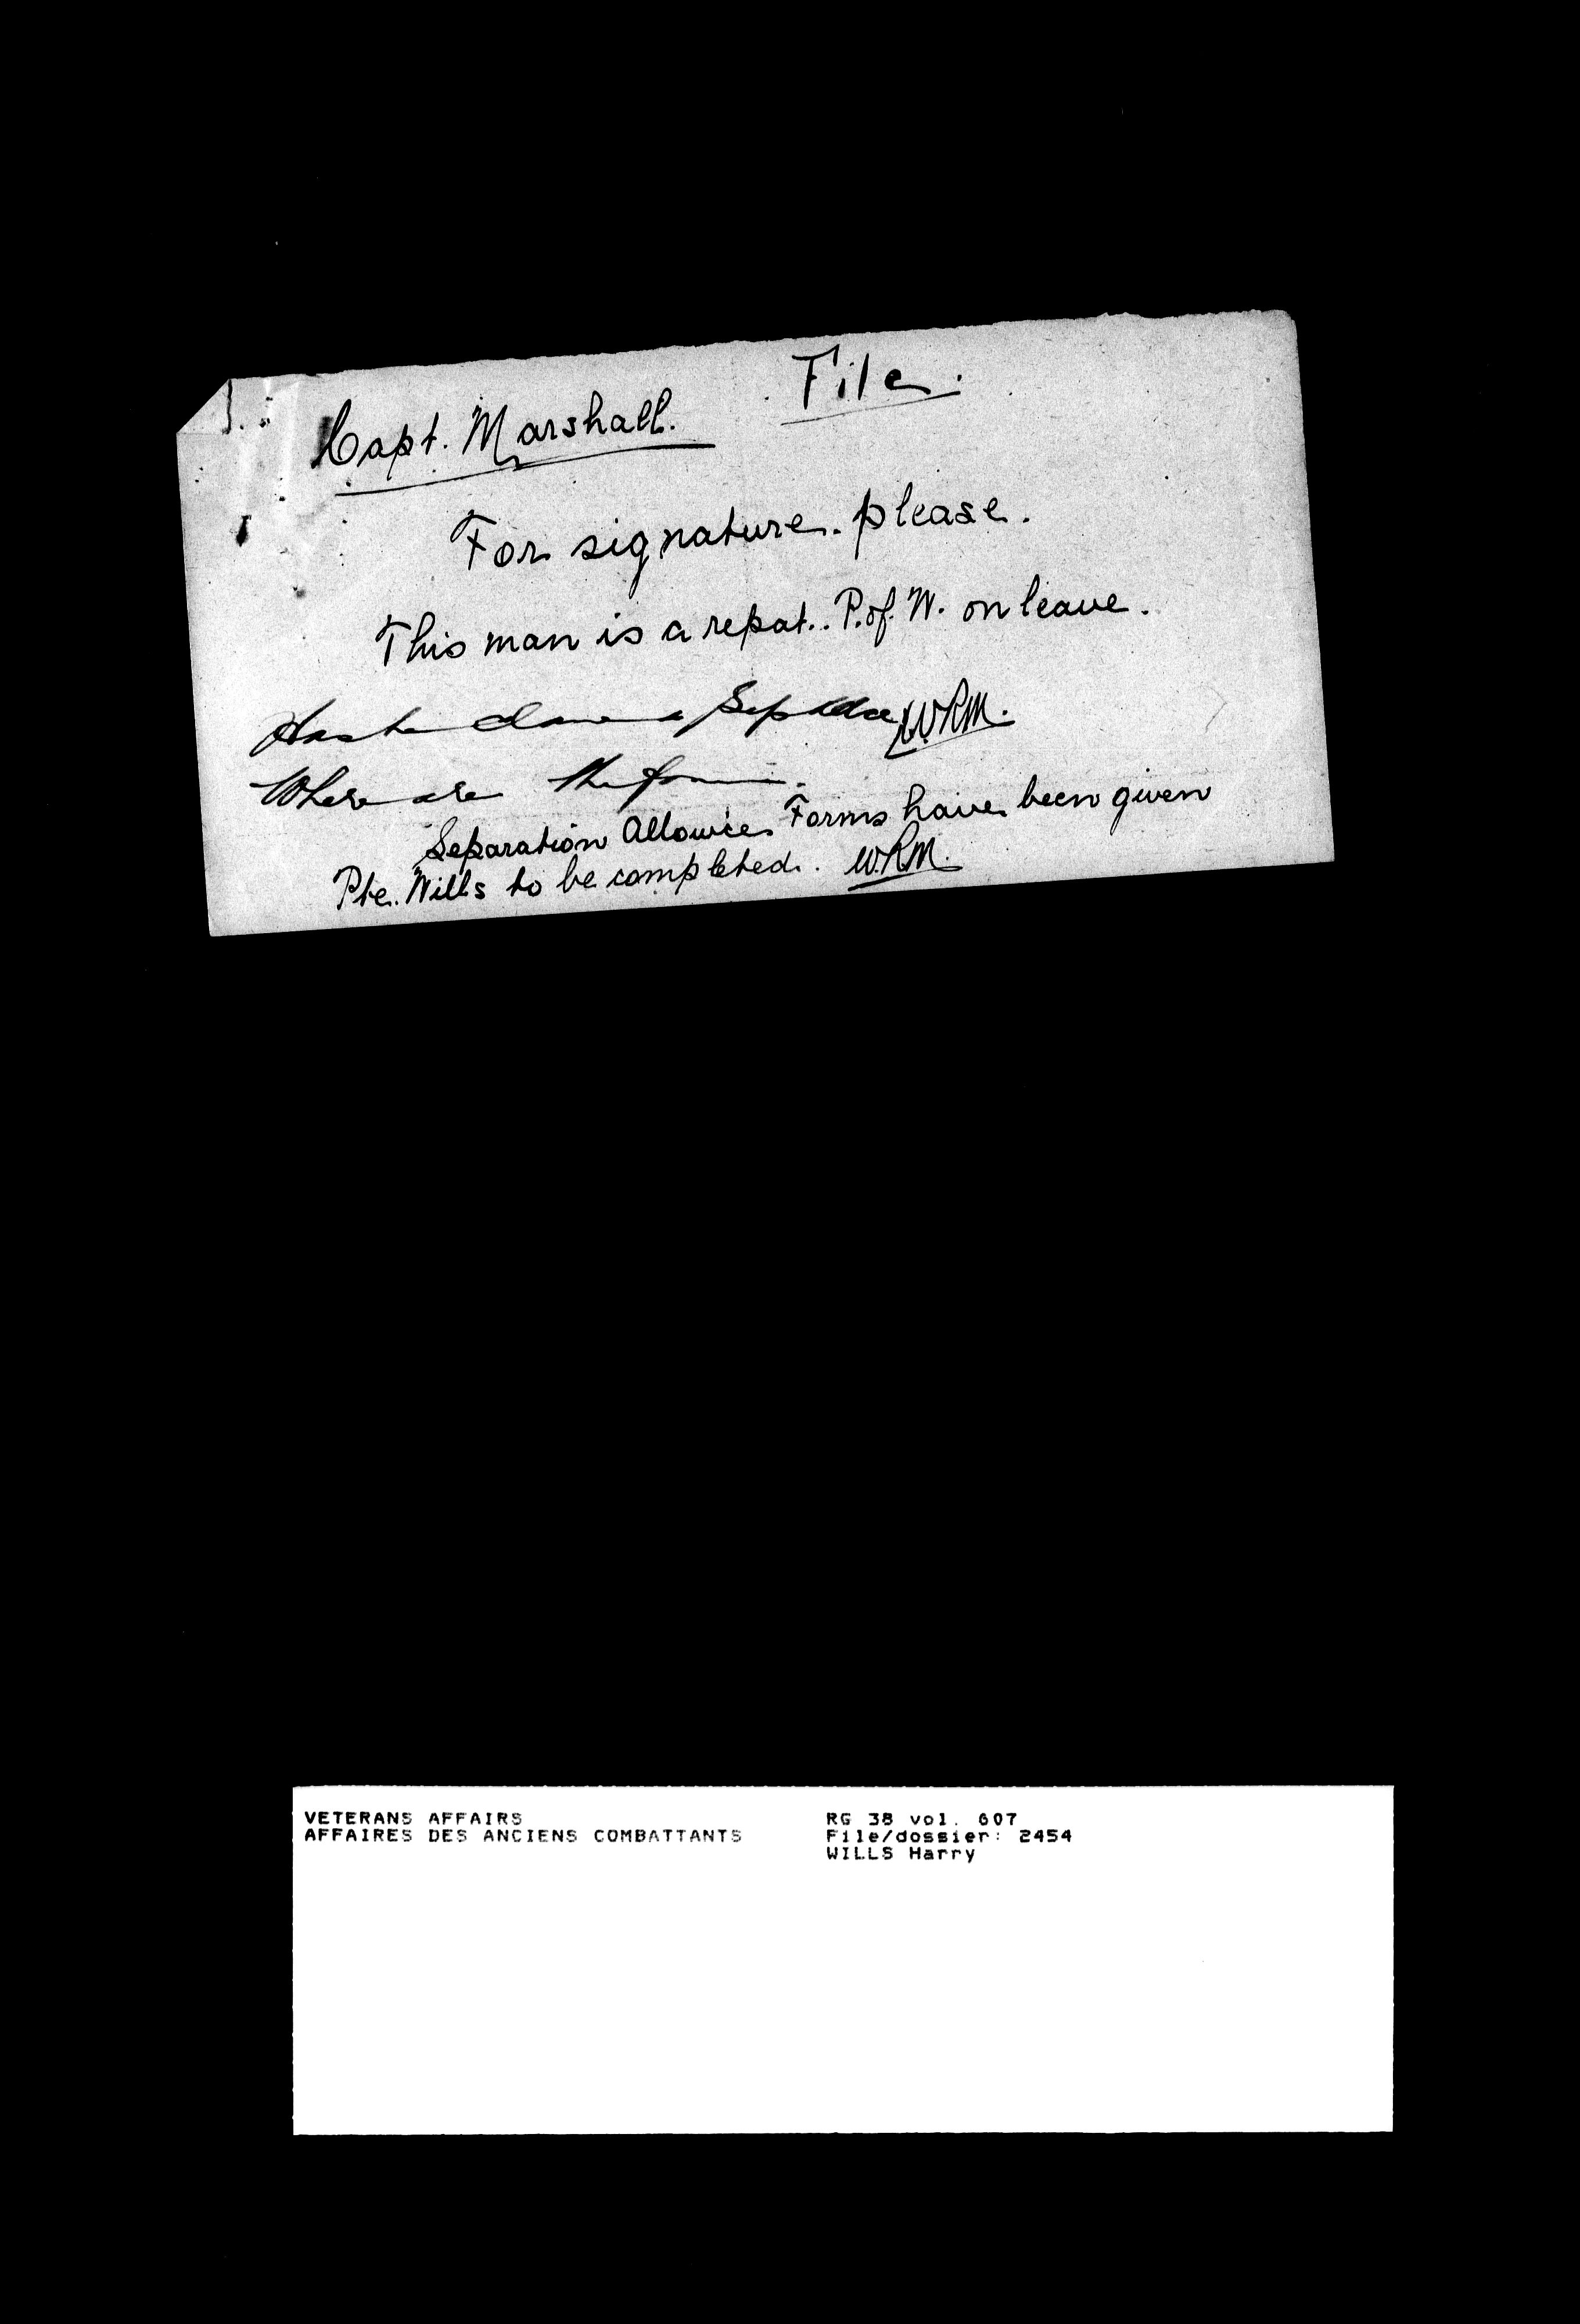 File.
Capt. Marshall.
For signature. please.
This man is a repat.. P. of. W. on leave.
Has he a Sep W.R.M.
Where are the forms.
Separation Allowce. Forms have been given
Pte. Wills to be completed. W.R.M.
VETERANS AFFAIRS
AFFAIRES DES ANCIENS COMBATTANTS
RG 38 vol. 607
File/dossier: 2454
WILLS Harry